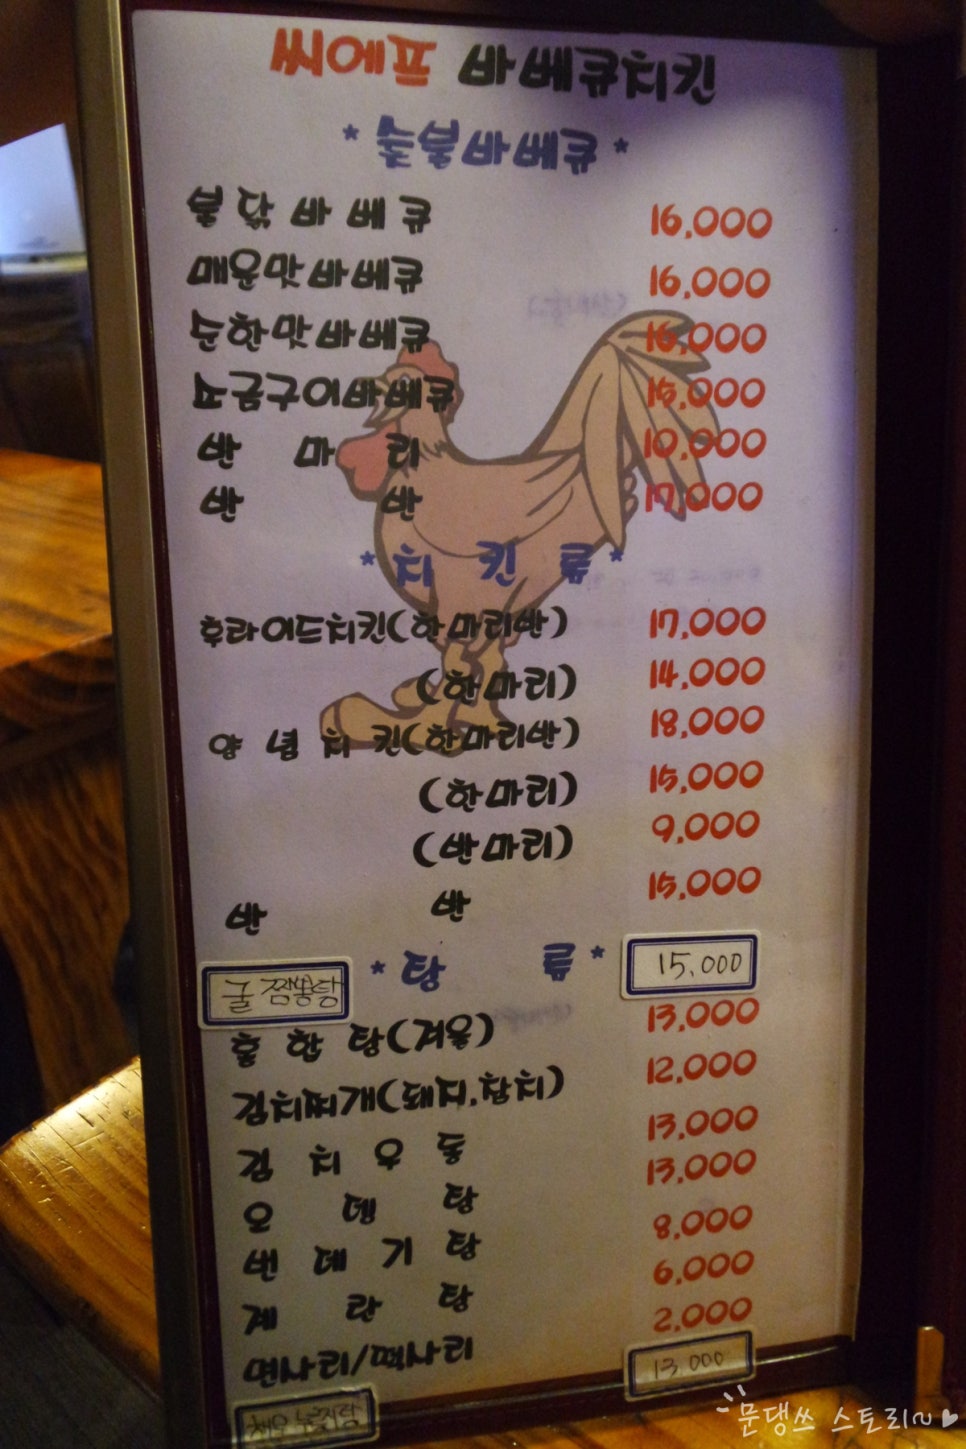 씨에프 바베큐치킨
*숯불바베큐*
불닭바베큐 16,000
매운맛바베큐 16,000
순한맛바베큐 16,000
소금구이바베큐 15,000
반 마 리 10,000
반 반 17,000
*치 킨 류*
후라이드치킨(한마리반) 17,000
(한마리) 14,000
양념치킨(한마리반) 18,000
(한마리) 15,000
(반마리) 9,000
반 반 15,000
*탕 류*
굴 짬뽕탕 15,000
홍합탕(겨울) 13,000
김치찌개(돼지,참치) 12,000
김치우동 13,000
오뎅탕 13,000
번데기탕 8,000
계란탕 6,000
면사리/떡사리 2,000
해물 누룽지탕 13,000
문댕쓰 스토리~